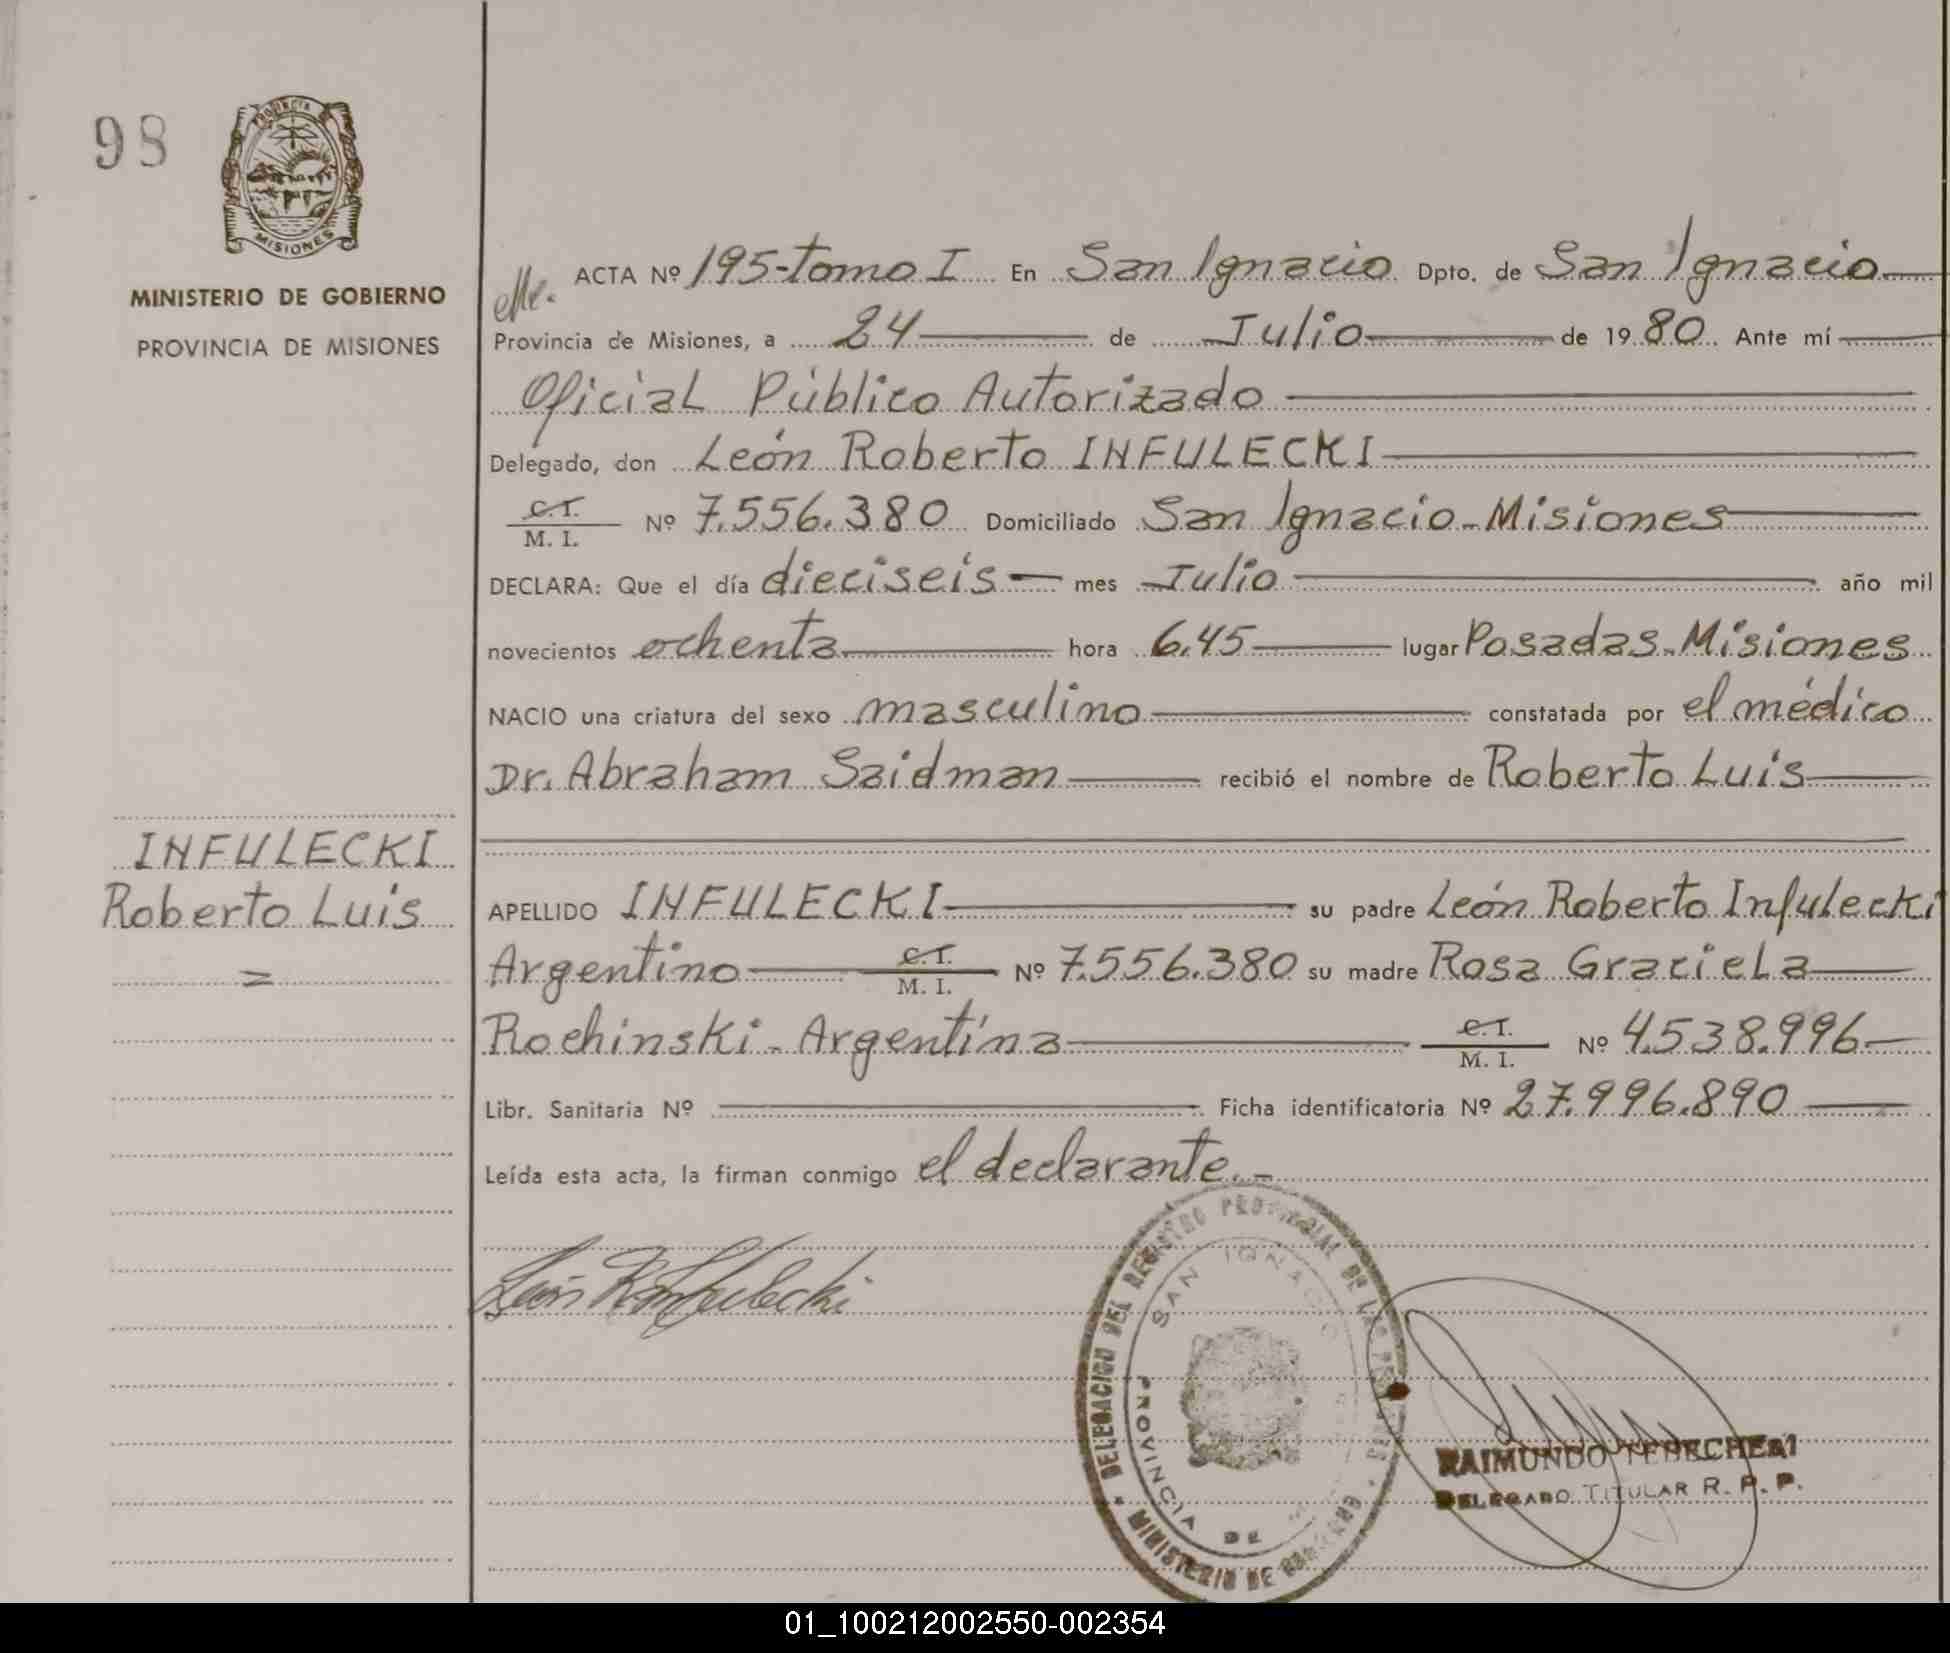 98
PROVINCIA
MISIONES
MINISTERIO DE GOBIERNO
PROVINCIA DE MISIONES
ACTA Nº 195-tomo I En San Ignacio Dpto. de San Ignacio
Provincia de Misiones, a 24 de Julio de 1980 Ante mí
Oficial Público Autorizado
Delegado, don León Roberto INFULECKI
C.I.
M. I. Nº 7.556.380 Domiciliado San Ignacio-Misiones
DECLARA: Que el día dieciseis mes Julio año mil
novecientos ochenta hora 6.45 lugar Posadas-Misiones
NACIO una criatura del sexo masculino constatada por el médico
Dr. Abraham Saidman recibió el nombre de Roberto Luis
INFULECKI
Roberto Luis
=
APELLIDO INFULECKI su padre León Roberto Infulecki
Argentino C.I. M. I. Nº 7.556.380 su madre Rosa Graciela
Rochinski-Argentina C.I. M. I. Nº 4.538.996
Libr. Sanitaria Nº Ficha identificatoria Nº 27.996.890
Leída esta acta, la firman conmigo el declarante.-
León R Infulecki
DELEGACION DEL REGISTRO PROVINCIAL DE LAS
SAN IGNACIO
PROVINCIA DE
MINISTERIO DE GOBIERNO
RAIMUNDO
DELEGADO TITULAR R. P. P.
01_100212002550-002354